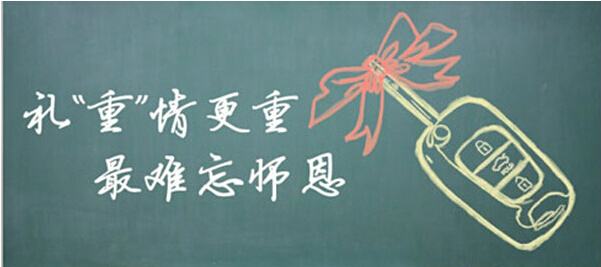 礼“重”情更重
最难忘师恩